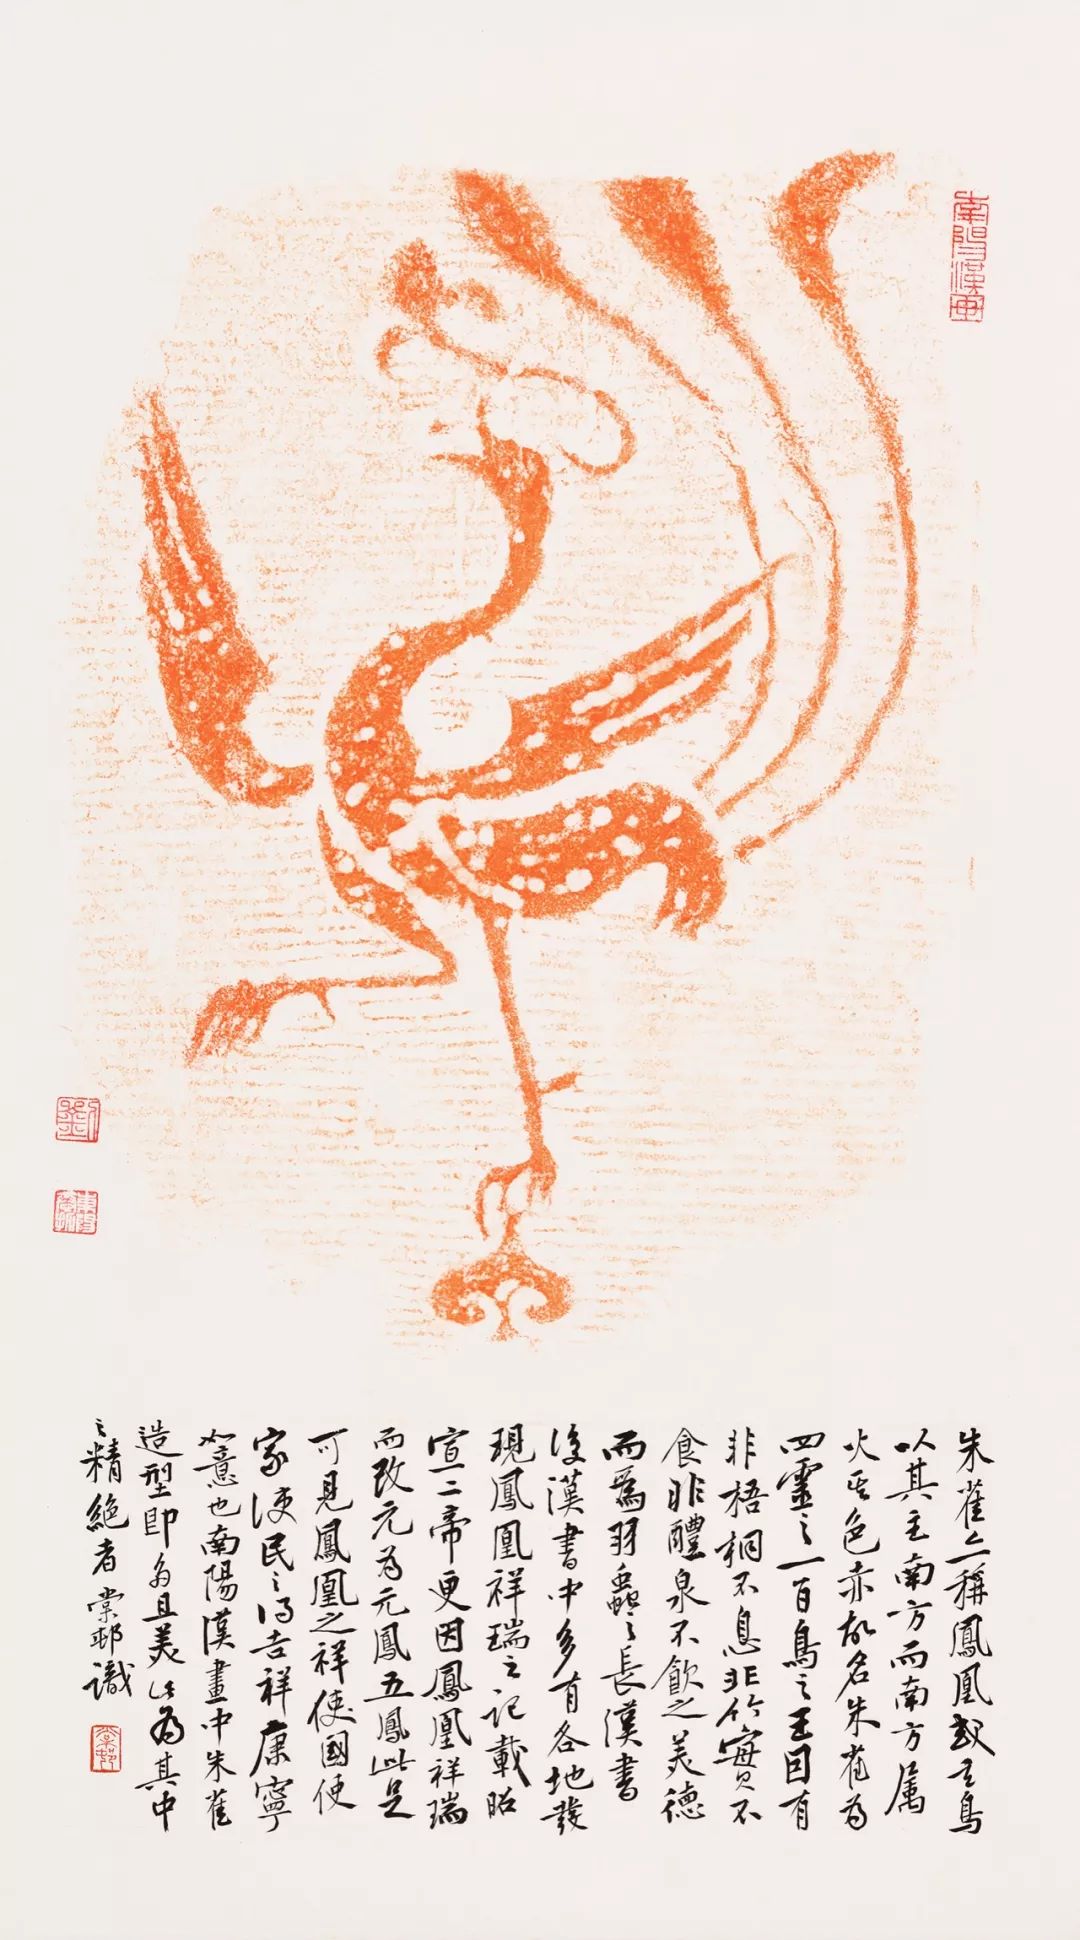 南陽漢画
朱雀亦稱鳳凰或玄鳥
以其主南方而南方属
火其色赤故名朱雀为
四靈之一百鳥之王因有
非梧桐不息非竹實不
食非醴泉不飲之美德
而爲羽蟲之長漢書
後漢書中多有各地發
現鳳凰祥瑞之記載昭
宣二帝更因鳳凰祥瑞
而改元为元鳳五鳳此足
可見鳳凰之祥使國使
家使民之得吉祥康寧
如意也南陽漢畫中朱雀
造型即多且美此为其中
之精絶者棠邨識
棠邨